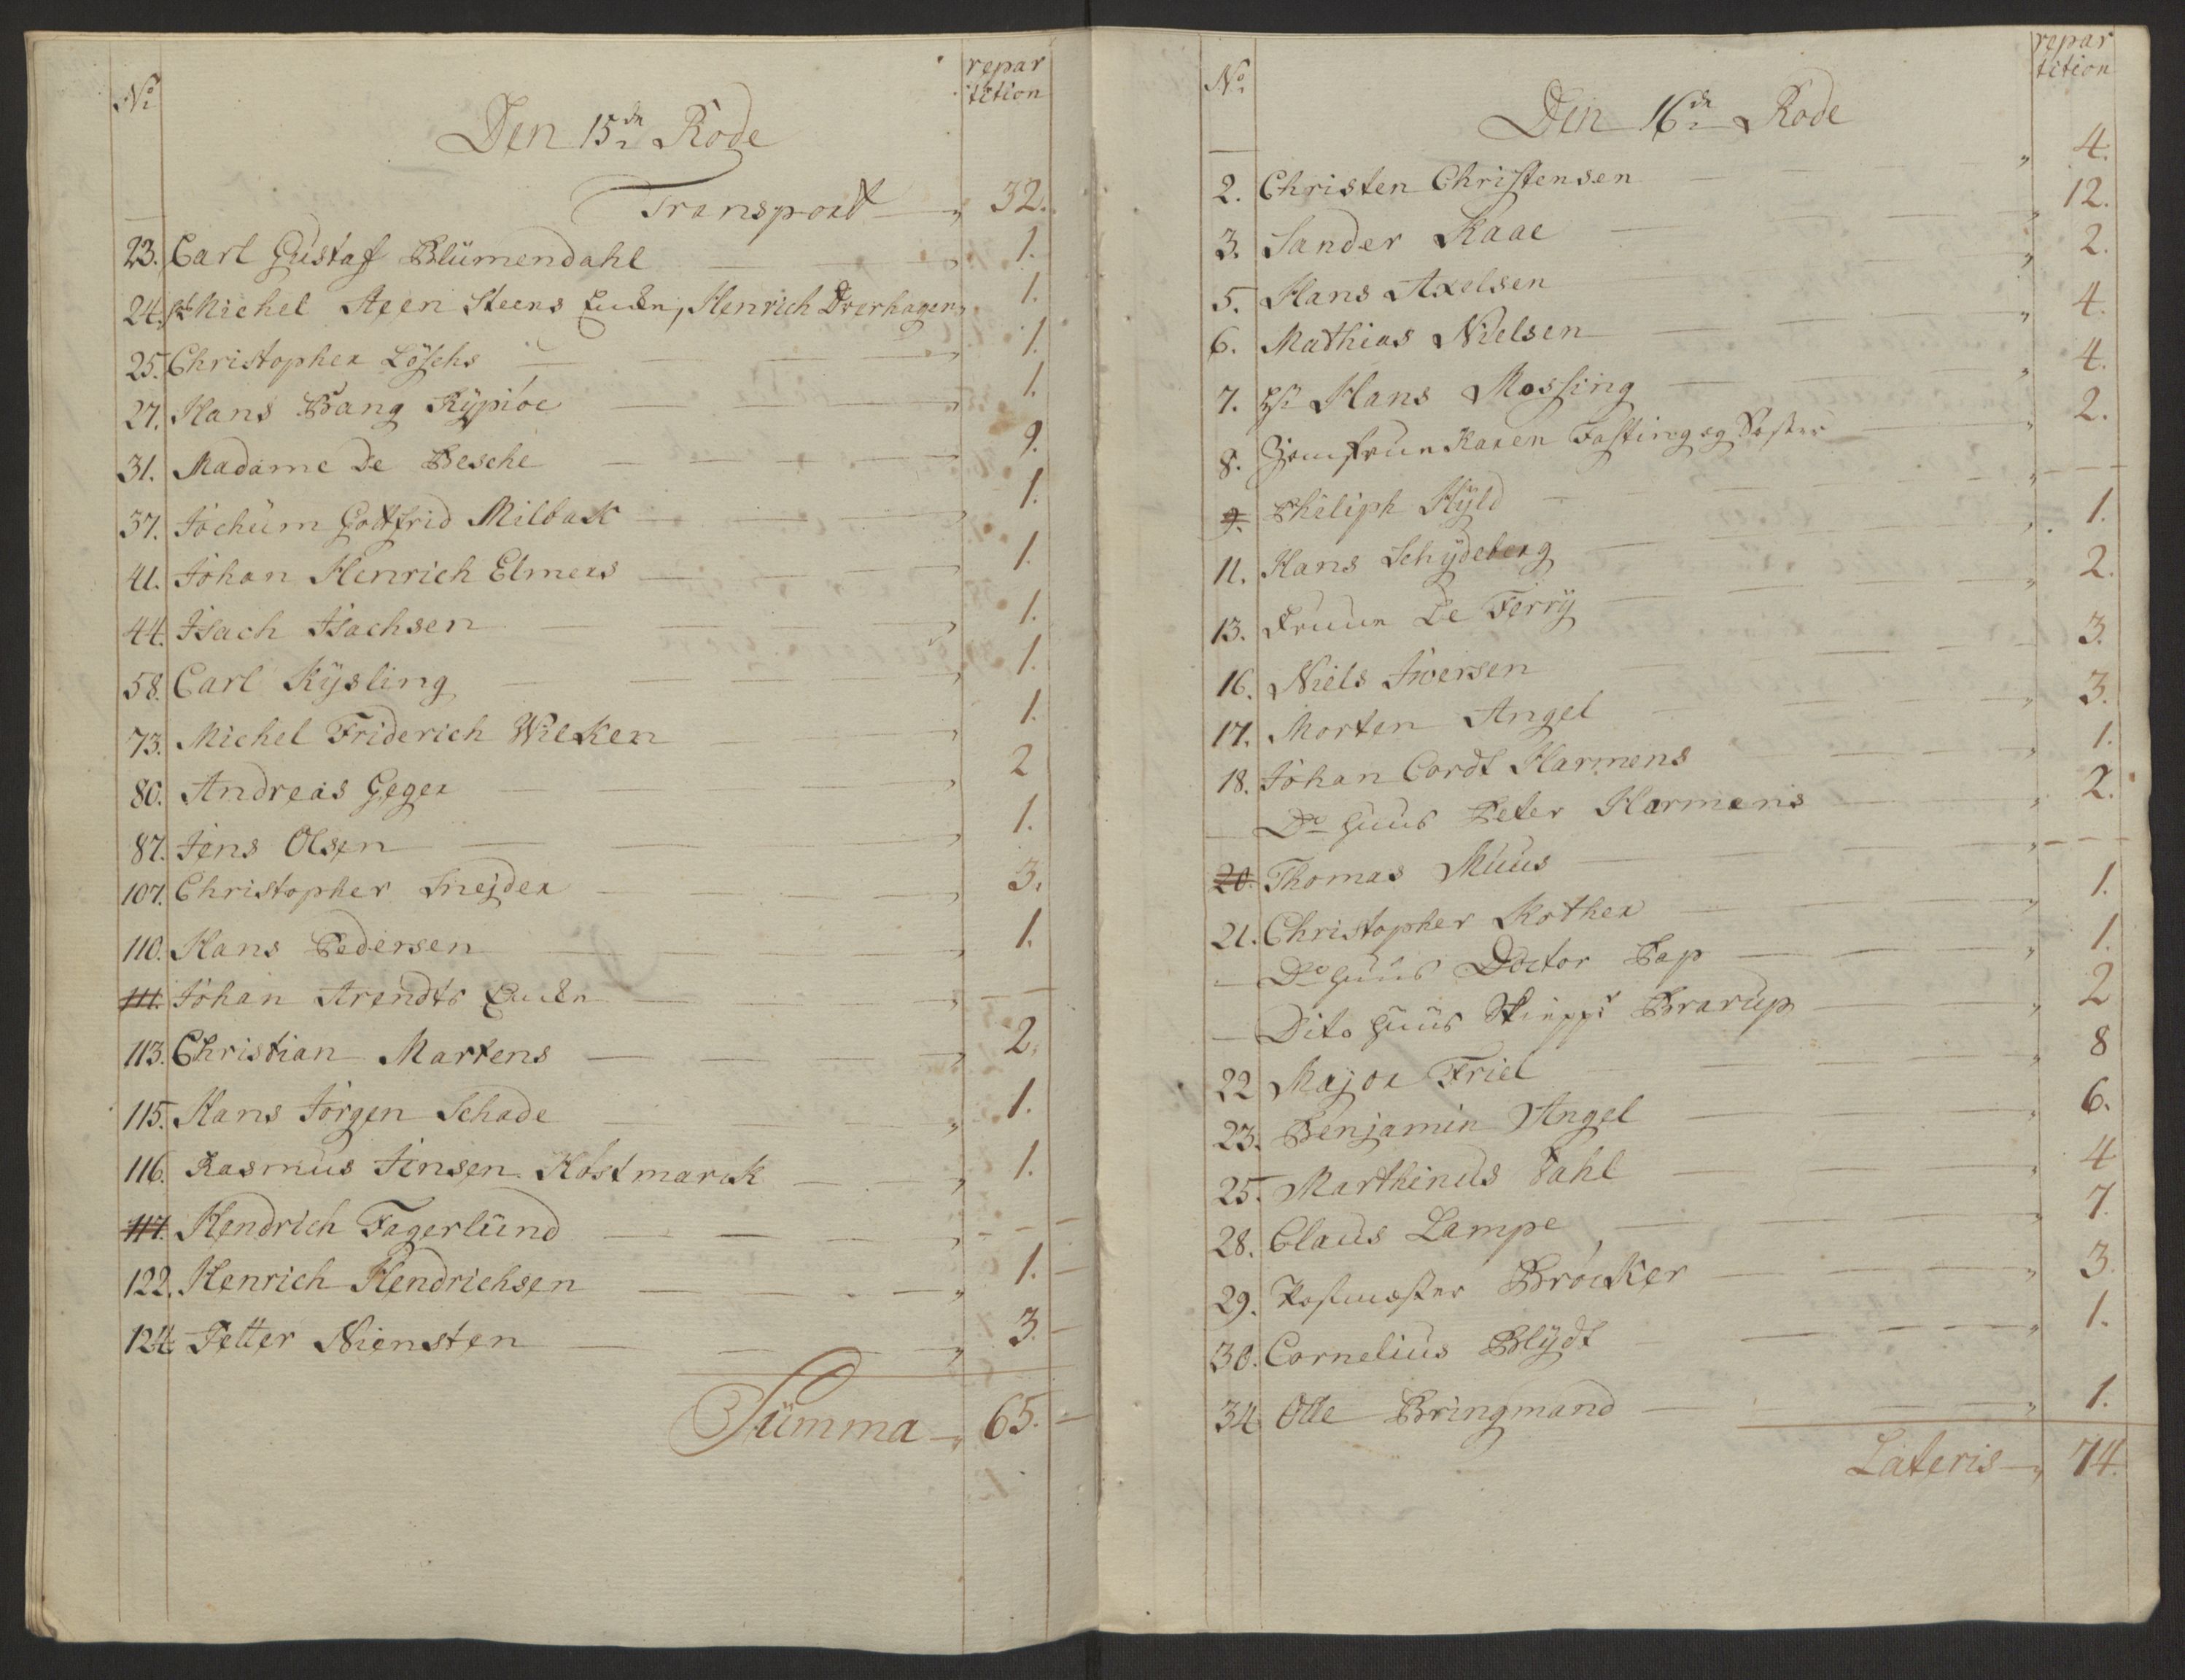 No repar
tition
Den 15de Rode
Transport 32.
23. Carl Gustaf Blümendahl 1.
24. Michel Steens Enke, Henrich Overhagen 1.
25. Christopher Löschs 1.
27. Hans Bang Kÿpioe 1.
31. Madame De Besche 9.
37. Jochüm Gottfrid Milbak 1.
41. Johan Henrich Elmers 1.
44. Isach Isachsen 1.
58. Carl Kÿsling 1.
73. Michel Friderich Wilken 1.
80. Andreas Geger 2
87. Jens Olsen 1.
107. Christopher Snejder 3.
110. Hans Pedersen 1.
111. Johan Arendts Enke - -
113. Christian Martens 2.
115. Hans Jörgen Schade 1.
116. Rasmus Jensen Kostmark 1.
117. Hendrich Fagerlünd - -
122. Henrich Hendrichsen 1.
124. Petter Niensten 3.
Sümma 65.
No repar
tition
Den 16de Rode
2. Christen Christensen 4.
3. Sander Kaae 12.
5. Hans Axelsen 2.
6. Mathias Nielsen 4.
7. Hr Hans Mossing 4.
8. Jomfrue Karen Fasting og Søster 2.
9. Philiph Hÿld - -
11. Hans Schÿdeberg 1.
13. Fruue De Ferrÿ 2.
16. Niels Iwersen 3.
17. Morten Angel 3.
18. Johan Cordt Harmens 1.
Do Huus Peter Harmens 2.
20. Thomas Müüs - -
21. Christopher Rother 1.
Do Huus Doctor Pap 1.
Dito Huus Skippr Brarüp 2
22 Major Friel 8
23. Benjamin Angel 6.
25. Marthinus Dahl 4
28. Claus Lampe 7.
29. Postmester Bröcker 3.
30. Cornelius Blÿdt 1.
34 Olle Bringmand 1.
Lateris 74.